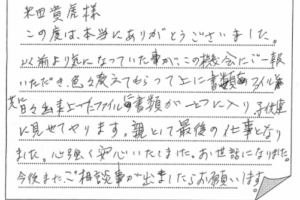 米田貴虎様
この度は、本当にありがとうございました。
以前より気になっていた事が、この機会にご一報
いただき、色々教えてもらって上に書類等ファイル
日々出来上ったファイルに書類が一つに入り、子供達
に見せてやります。親として最後の仕事となり
ました。心強く安心いたしました。お世話になりました。
今後またご相談事が出ましたらお願いします。